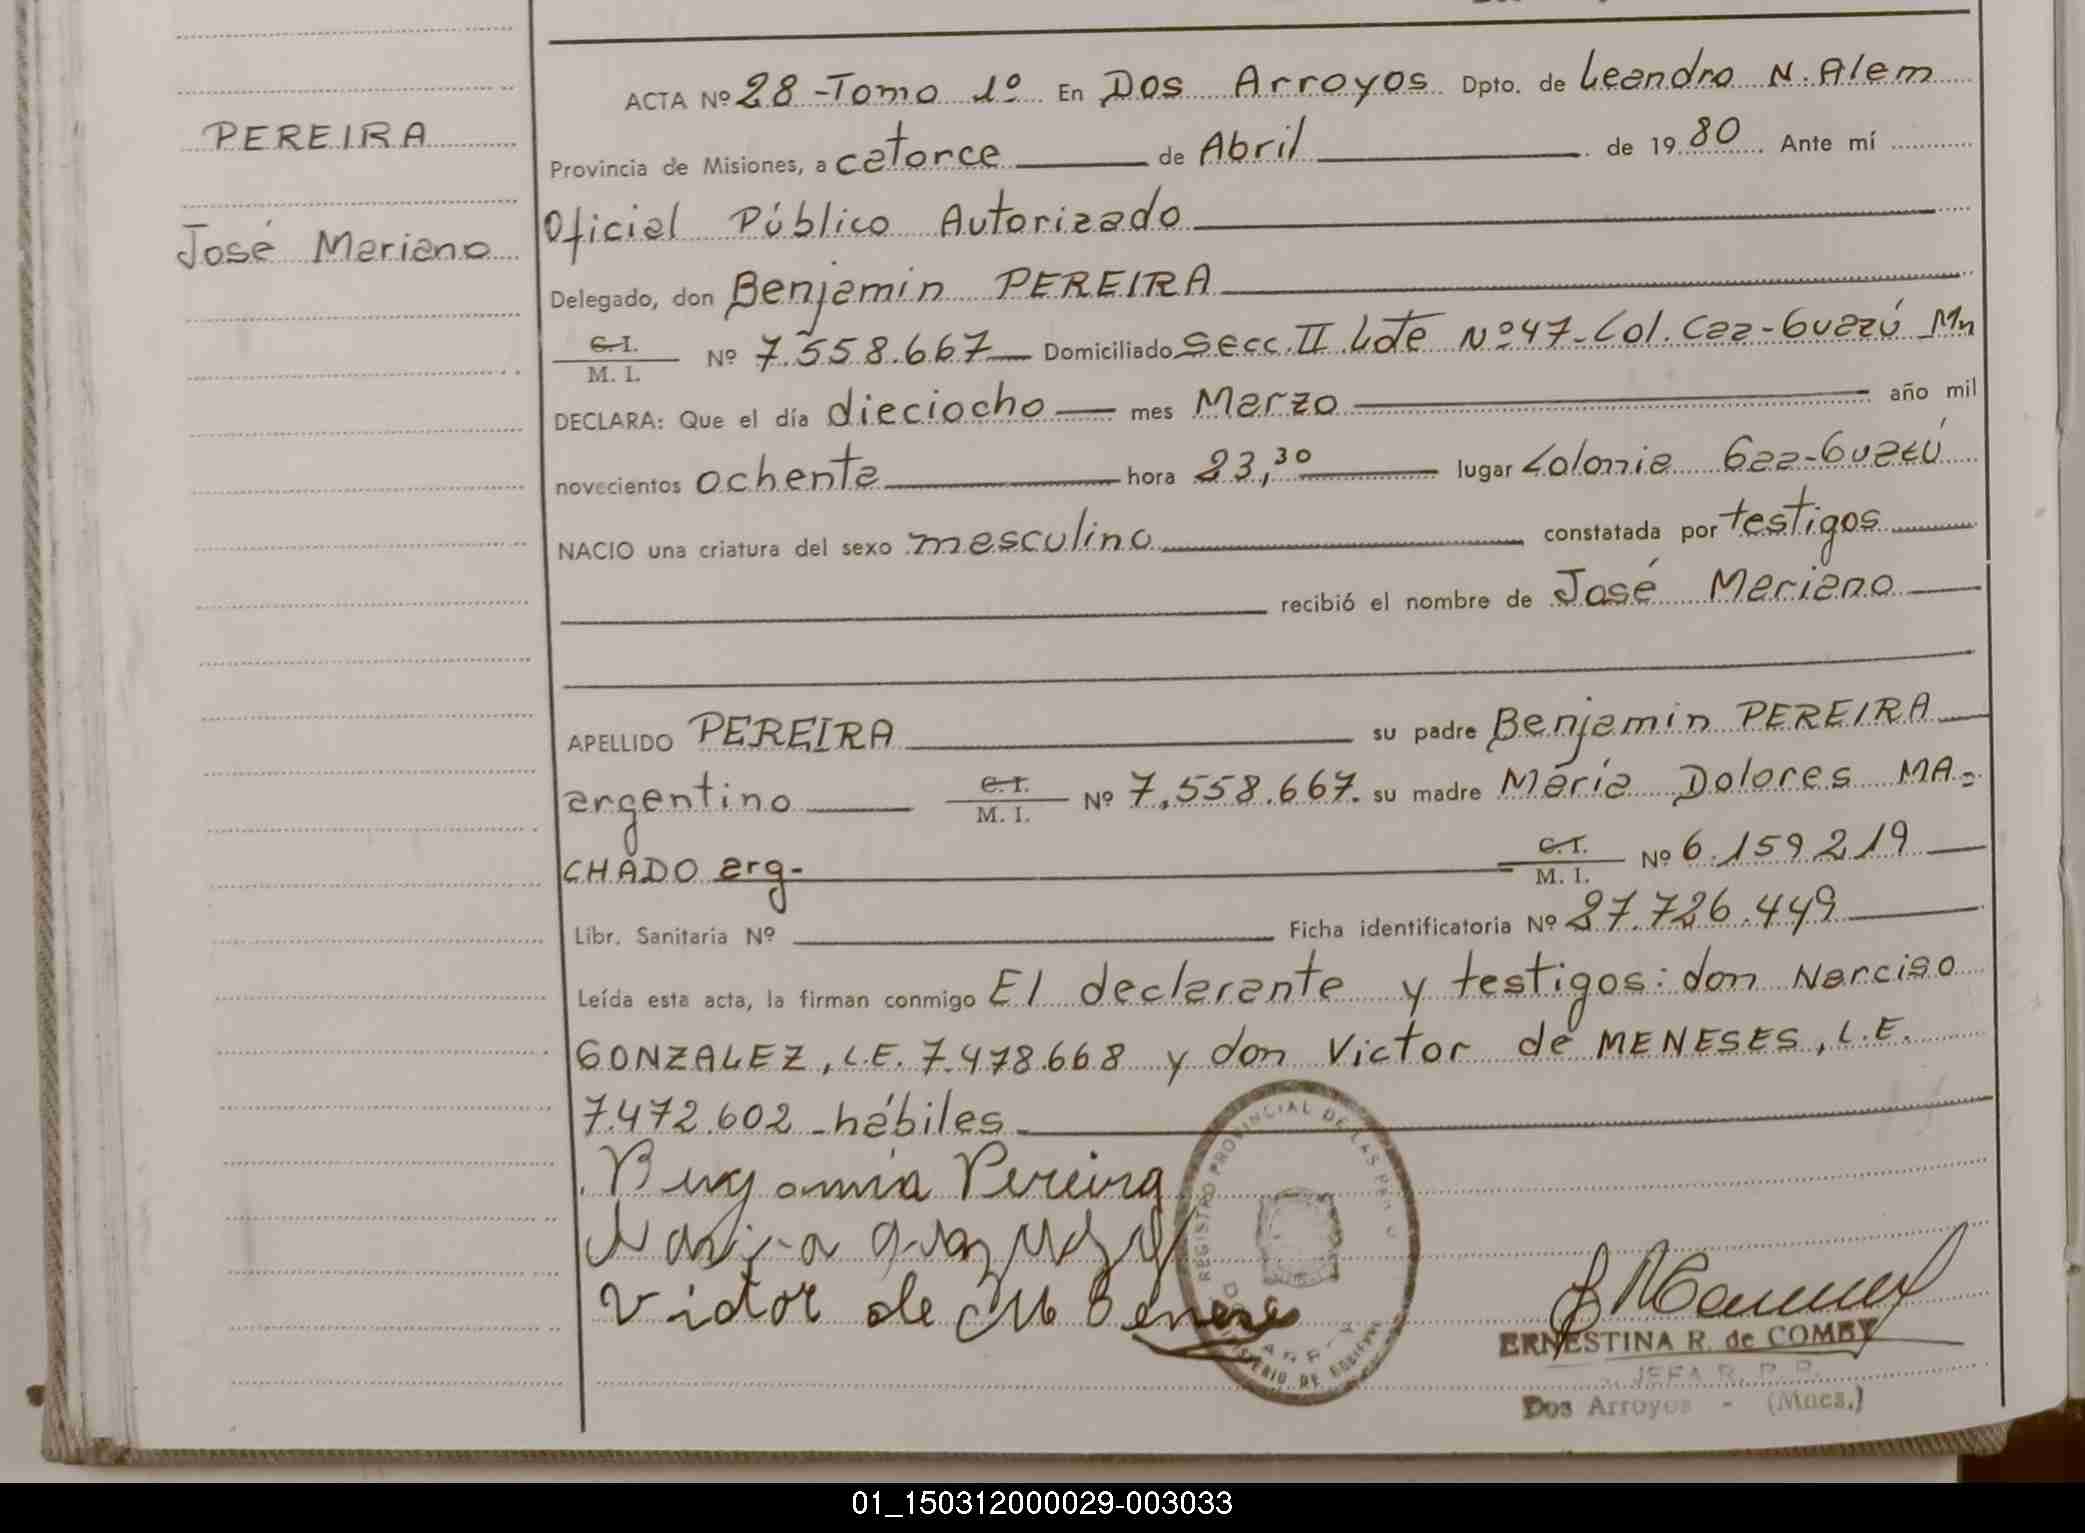 PEREIRA
José Mariano
ACTA Nº 28 - Tomo 1º En Dos Arroyos Dpto. de Leandro N. Alem
Provincia de Misiones, a catorce de Abril de 1980 Ante mí
Oficial Público Autorizado
Delegado, don Benjamin PEREIRA
C. I.
M. I.
Nº 7.558.667 Domiciliado Secc. II Lote Nº 47 - Col. Caa-Guazú Mn
DECLARA: Que el día dieciocho mes Marzo año mil
novecientos ochenta hora 23,30 lugar Colonia Caa-Guazú
NACIO una criatura del sexo masculino constatada por testigos
recibió el nombre de José Mariano
APELLIDO PEREIRA su padre Benjamin PEREIRA
argentino C. I. M. I. Nº 7.558.667. su madre María Dolores MA=
CHADO arg- C. I. M. I. Nº 6.159.219
Libr. Sanitaria Nº Ficha identificatoria Nº 27.726.449
Leída esta acta, la firman conmigo El declarante y testigos: don Narciso
GONZALEZ, L.E. 7.478.668 y don Victor de MENESES, L.E.
7.472.602 - hábiles
Benjamin Pereira
Victor de Menese
REGISTRO PROVINCIAL DE LAS PER
MINISTERIO DE GOBIERNO
ERNESTINA R. de COMBY
JEFA R. P. P.
Dos Arroyos - (Mnes.)
01_150312000029-003033